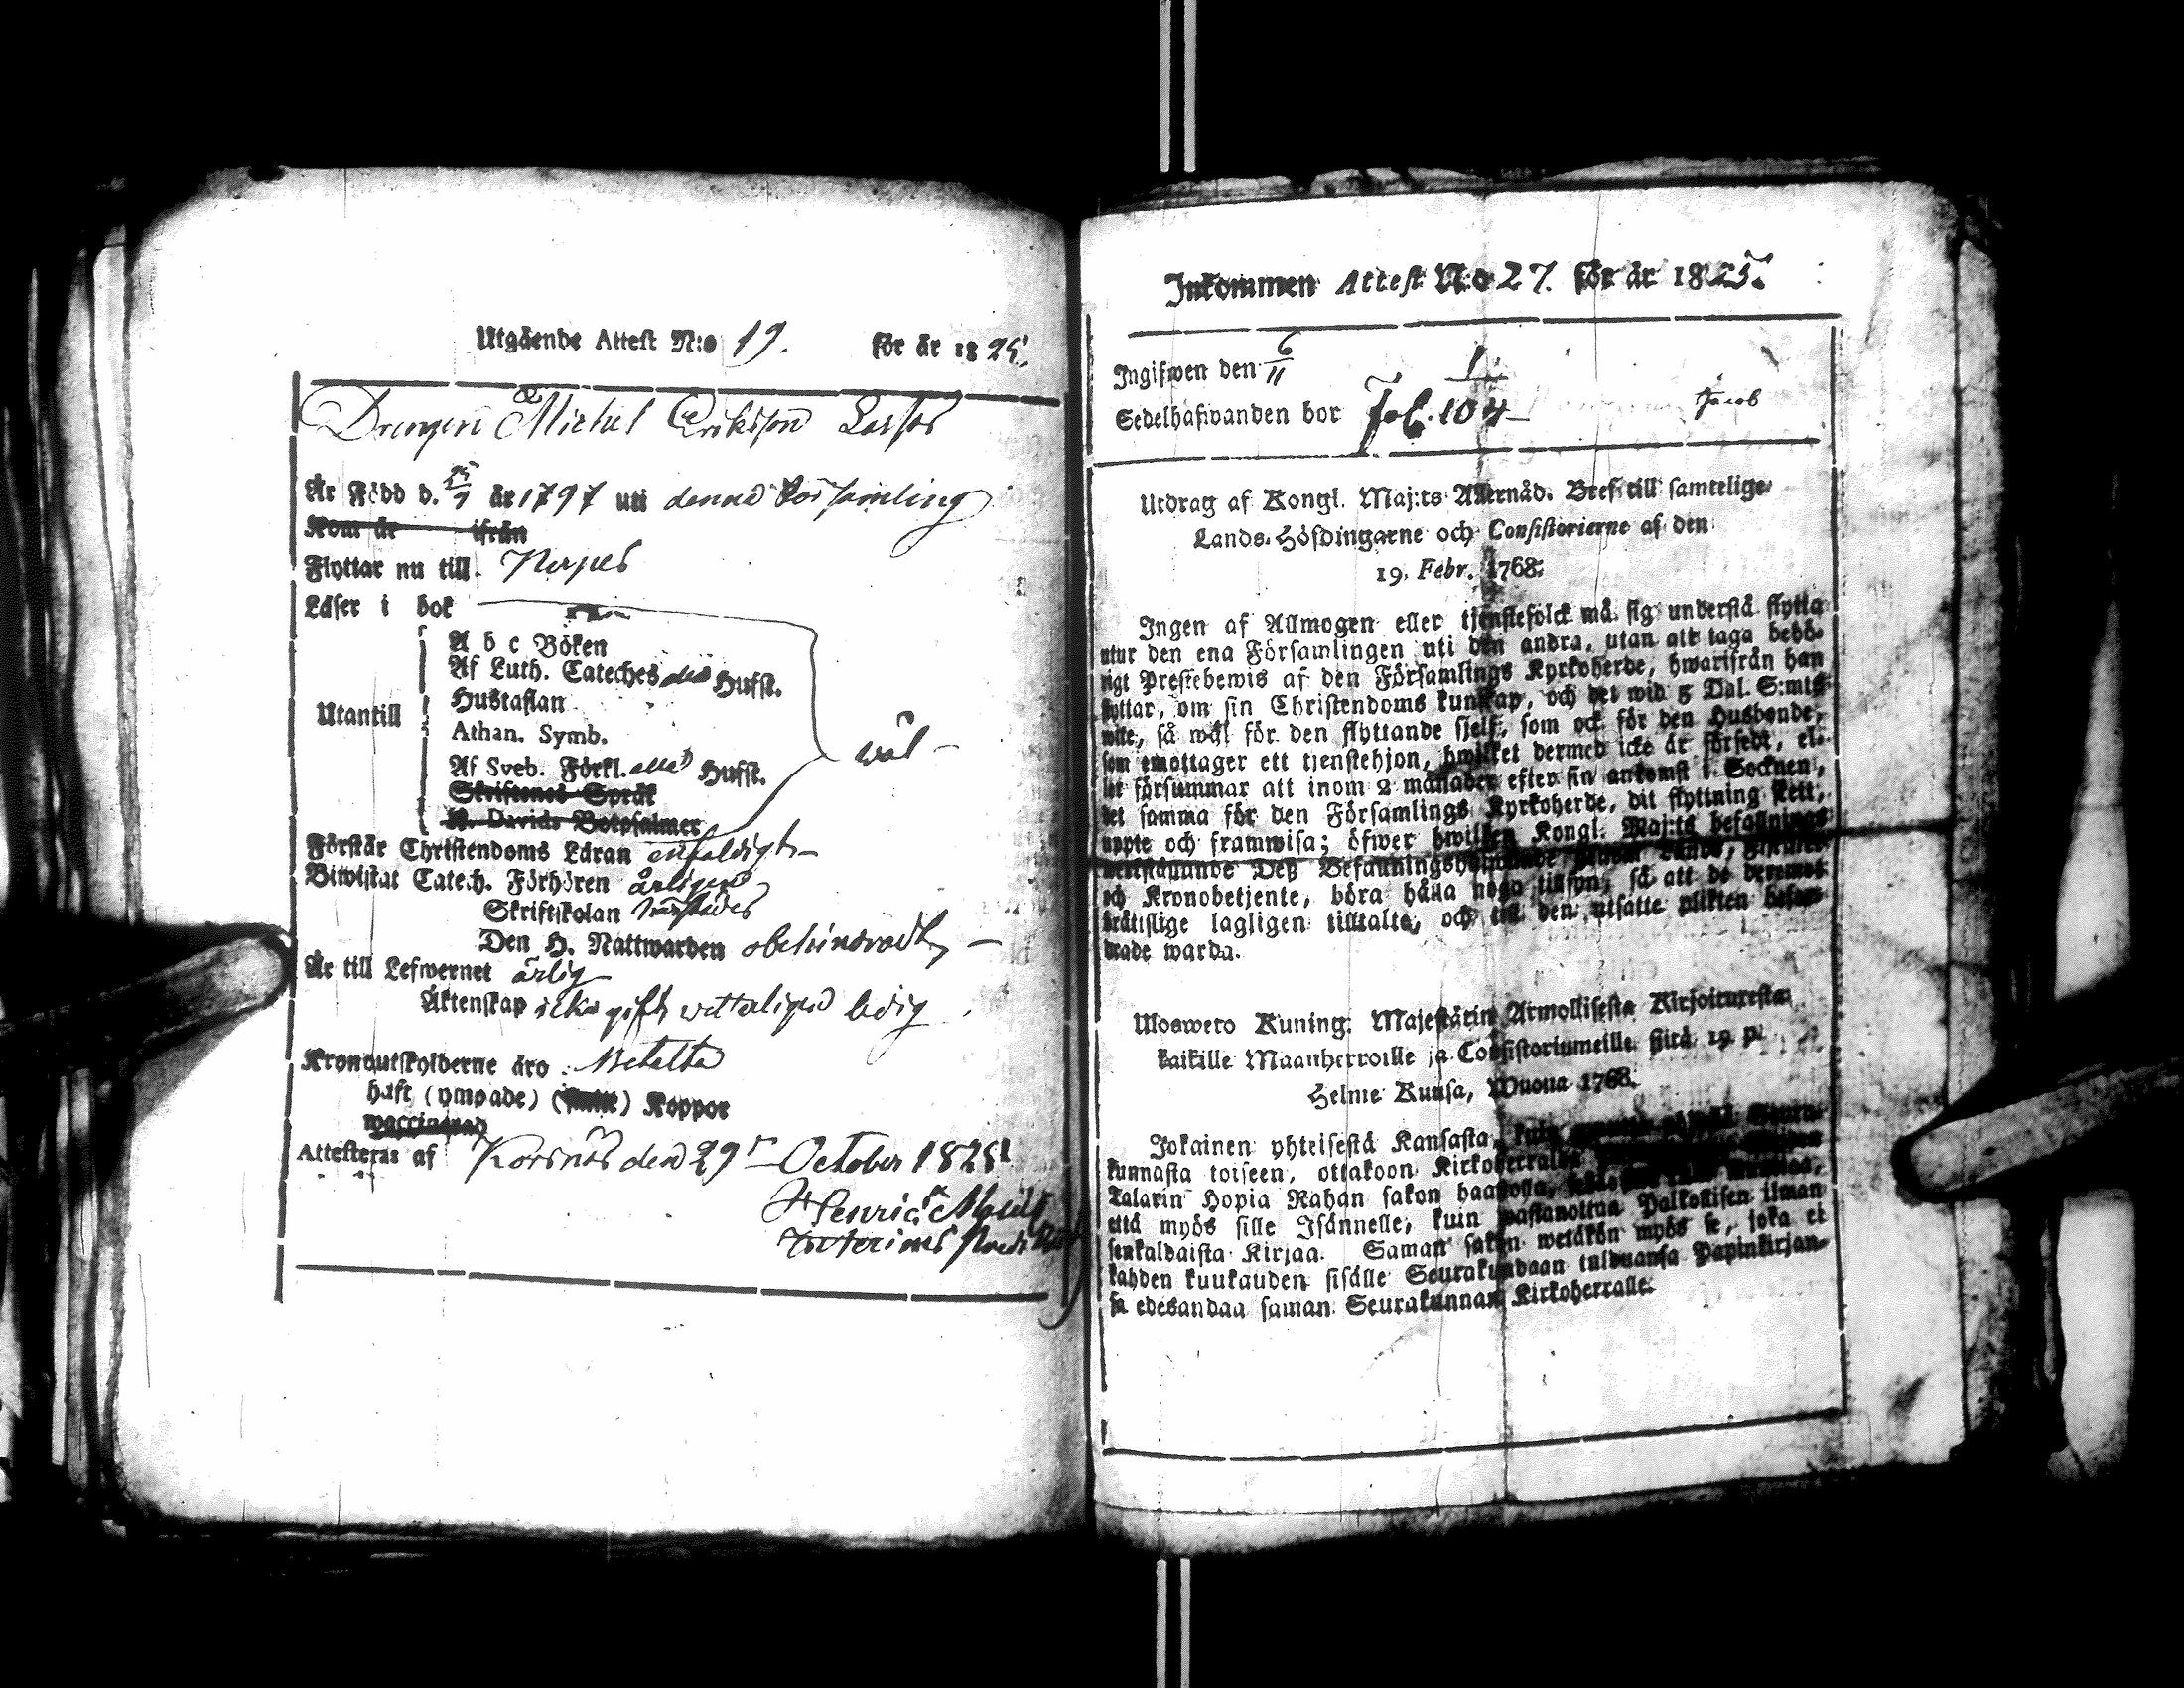 Utgående Attest N:o 19. för år 1825.
Drengen Michel Eriksson Lassos
Är Född d. 25/9 år 1797 uti denna Församling
Kom år ifrån
Flyttar nu till Nerpes
Läser i bok
A b c Boken
Af Luth. Cateches des Hufst.
Hustaflan
Utantill
Athan. Symb.
wäl –
Af Sveb. Förkl. alla Hufst.
Skriftenes Språk
K. Davids Botpsalmer
Förstår Christendoms Läran enfaldigt –
Biwistat Catech. Förhören årligen
Skriftskolan
Den H. Nattwarden obehindradt, –
Är till Lefwernet ärlig
Äktenskap icke gift, vetterligen ledig
Kronoutskylderne äro Betalta
haft (ympade) Koppor
waccinerad
Attesteras af Korsnäs den 29 October 1825
Henric
Inkommen Attest N:o 27. för år 1825.
Ingifwen den 6/11
1
Sedelhafwanden bor Fol. 104 – Jacob
Utdrag af Kongl. Maj:ts Allernåd. Bref till samtelige
Lands-Höfdingarne och Consistorierne af den
19. Febr. 1768.
Ingen af Allmogen eller tjenstefolck må sig understå flytta
utur den ena Församlingen uti den andra, utan att taga behö-
rigt Prestebewis af den Församlings Kyrkoherde, hwarifrån han
flyttar, om sin Christendoms kunskap, och det wid 5 Dal. S:mts
wite, så wäl för den flyttande sjelf, som ock för den Husbonde,
som emottager ett tjenstehjon, hwilket dermed icke är försedt, el-
ler försummar att inom 2 månader efter sin ankomst i Socknen,
det samma för den Församlings Kyrkoherde, dit flyttning skett,
uppte och framwisa; öfwer hwilken Kongl. Maj:ts befallnings
Deß Befallningshafwande
och Kronobetjente, böra hålla noga tillsyn, så att de deremot
brätslige lagligen tilltalte, och till den utsatte plikten befor-
drade warda.
Uloswето Kuning. Majestärin Armollisesta Kirjoituxesta
kaikille Maanherroille ja Consistoriumeille siitä 19. p.
Helme Kuusa, Wuona 1768.
Jokainen yhteisestä Kansasta, kuin Seura-
kunnasta toiseen, ottakoon Kirkoherralda
Talarin Hopia Rahan sakon haastolla,
että myös sille Isännelle, kuin wastanottaa Palkollisen ilman
senkaldaista Kirjaa. Saman sakon wetäkön myös se, joka ei
kahden kuukauden sisälle Seurakundaan tulduansa Papinkirjan-
sa edesandaa saman Seurakunnan Kirkoherralle.